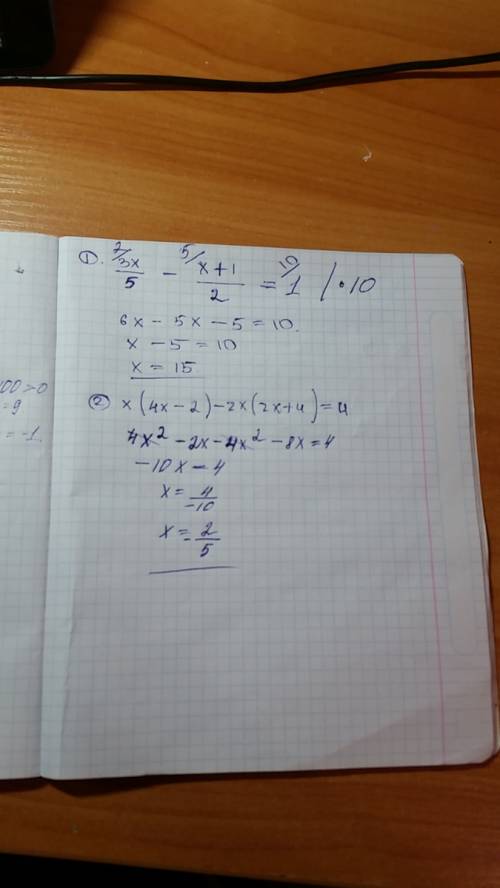 1. 2/ 3x/5 - 5/ (x+1)/2 = 10/ 1 | · 10
6x - 5x - 5 = 10.
x - 5 = 10
x = 15
2 x(4x-2)-2x(2x+4)=4
4x² - 2x - 4x² - 8x = 4
-10x - 4
x = 4/-10
x = - 2/5
00>0
= 9
= -1.